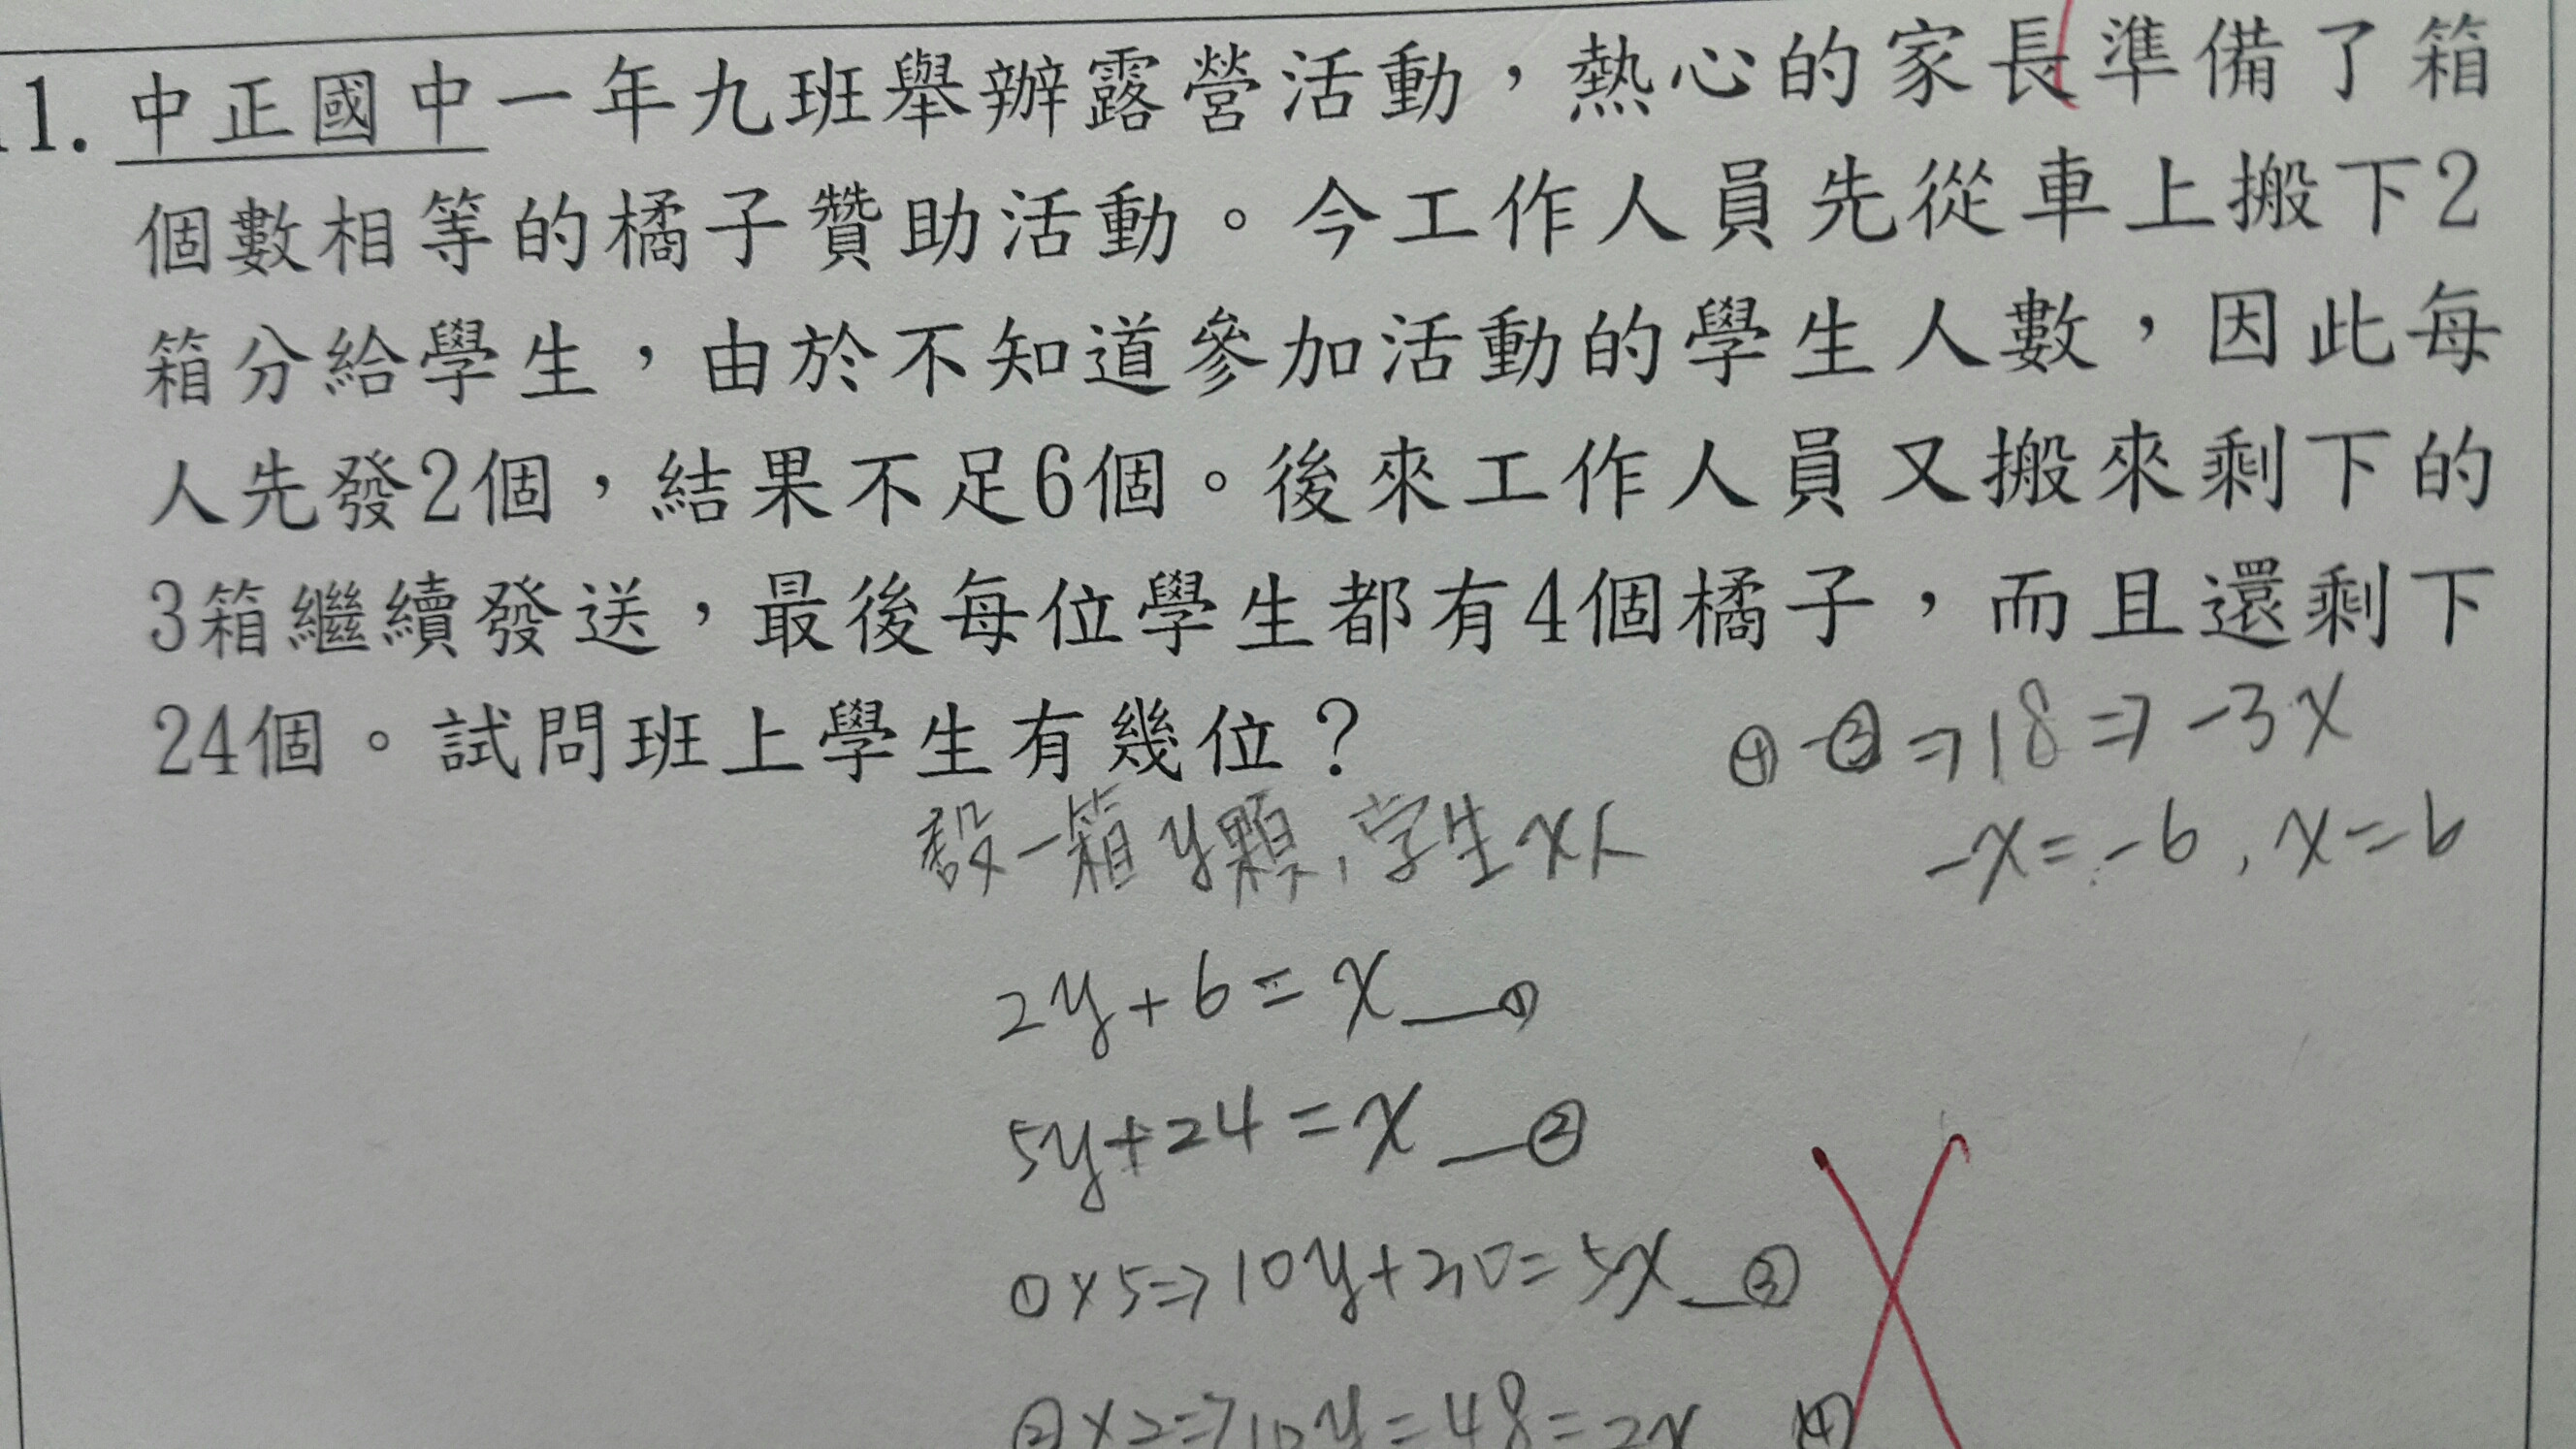 11. 中正國中一年九班舉辦露營活動，熱心的家長準備了箱
個數相等的橘子贊助活動。今工作人員先從車上搬下2
箱分給學生，由於不知道參加活動的學生人數，因此每
人先發2個，結果不足6個。後來工作人員又搬來剩下的
3箱繼續發送，最後每位學生都有4個橘子，而且還剩下
24個。試問班上學生有幾位？
④-③⇒18⇒-3x
-x=-6，x=6
設一箱y顆，学生x人
2y+6=x—①
5y+24=x—②
①×5⇒10y+30=5x—③
②×2⇒10y=48=2x ④